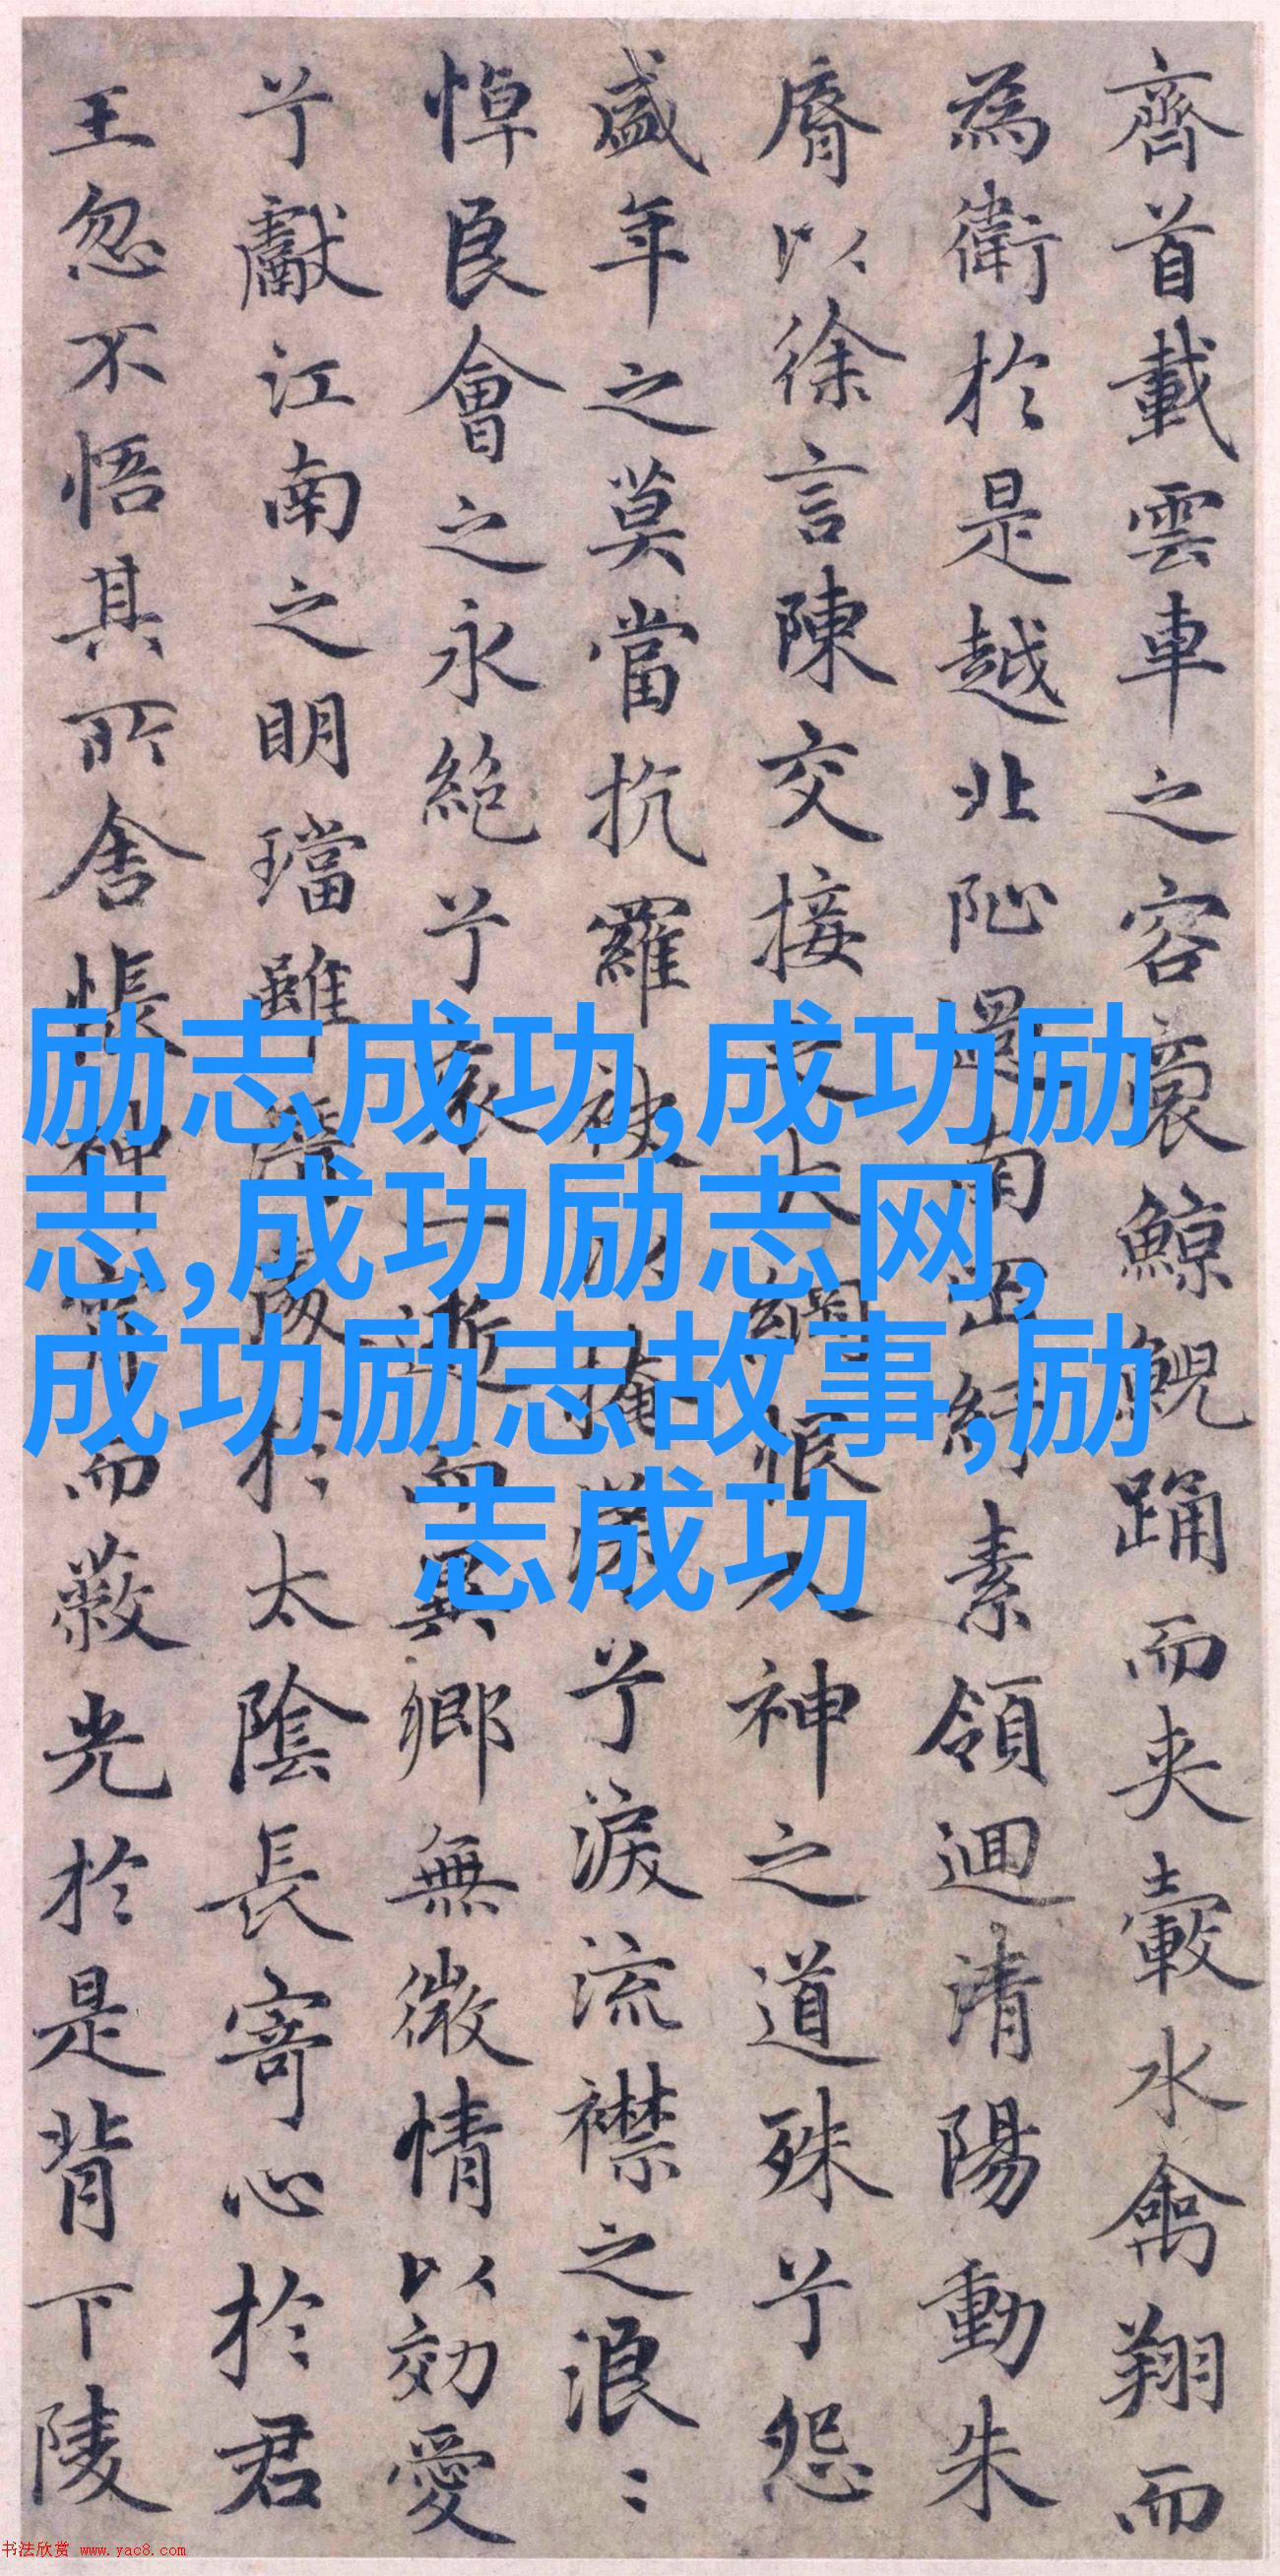 齊首載雲車之容裔鯨鯢踊而夾轂水禽翔而
為衛於是越北沚過南岡紆素領迴清陽動朱
脣以徐言陳交接之大綱恨人神之道殊兮怨
盛年之莫當抗羅袂以掩涕兮淚流襟之浪〻
悼良會之永絕兮哀一逝而異鄉無微情以効愛
兮獻江南之明璫雖潛處於太陰長寄心於君
王忽不悟其所舍悵神宵而蔽光於是背下陵
励志成功,成功励
志,成功励志网,
成功励志故事,励
志成功
书法欣赏 www.yac8.com